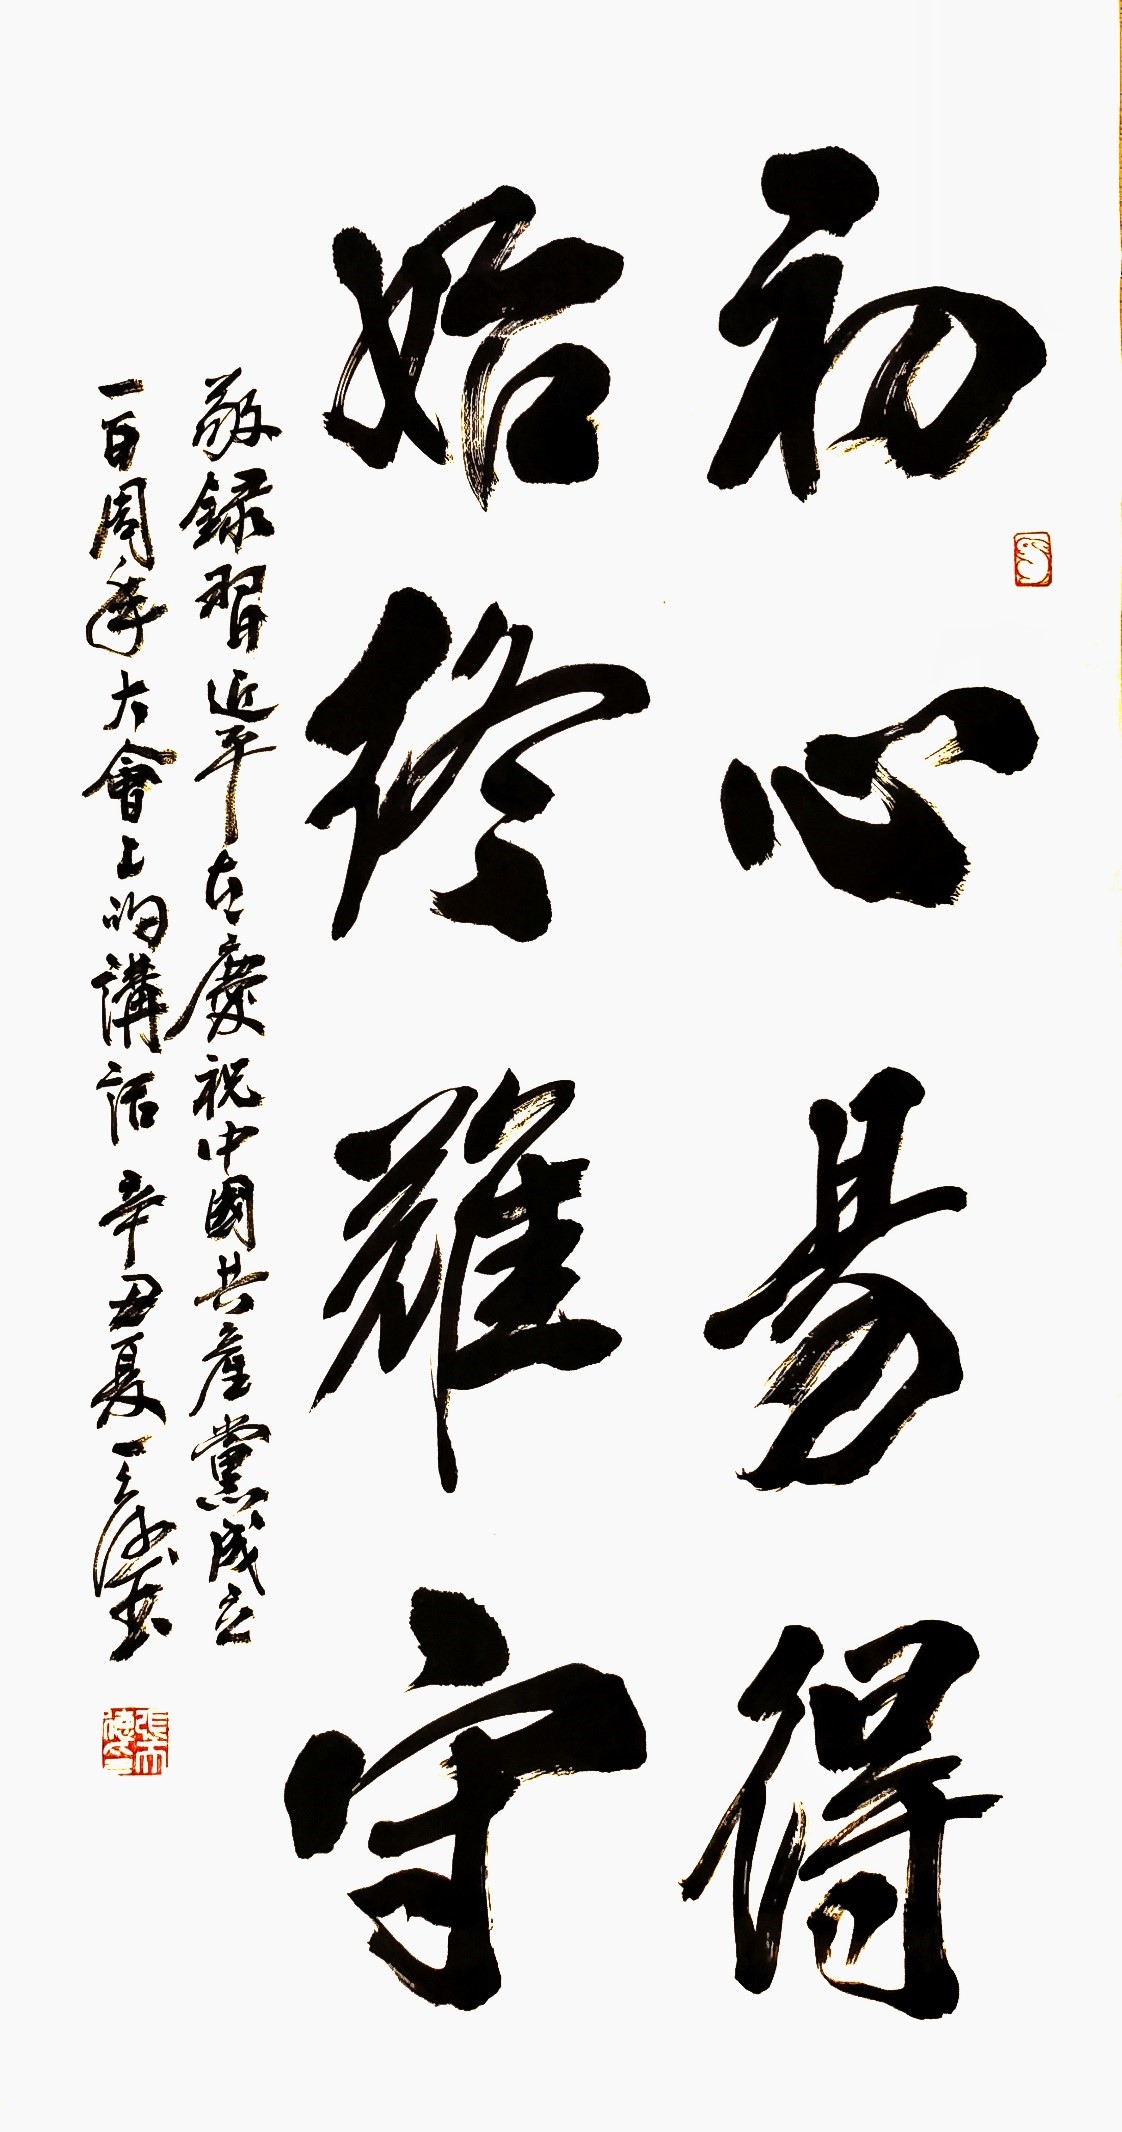 初心易得
始終難守
敬録習近平在慶祝中國共產黨成立
一百周年大會上的講話 辛丑夏 天德書
張天德印